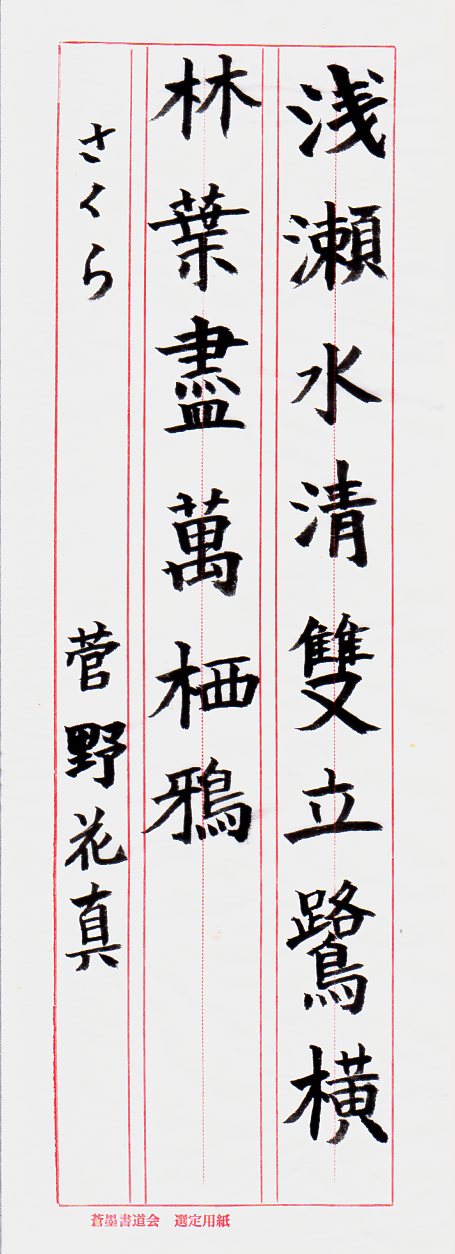 浅瀬水清雙立鷺横
林葉盡萬栖鴉
さくら 菅野花真
蒼墨書道会 選定用紙